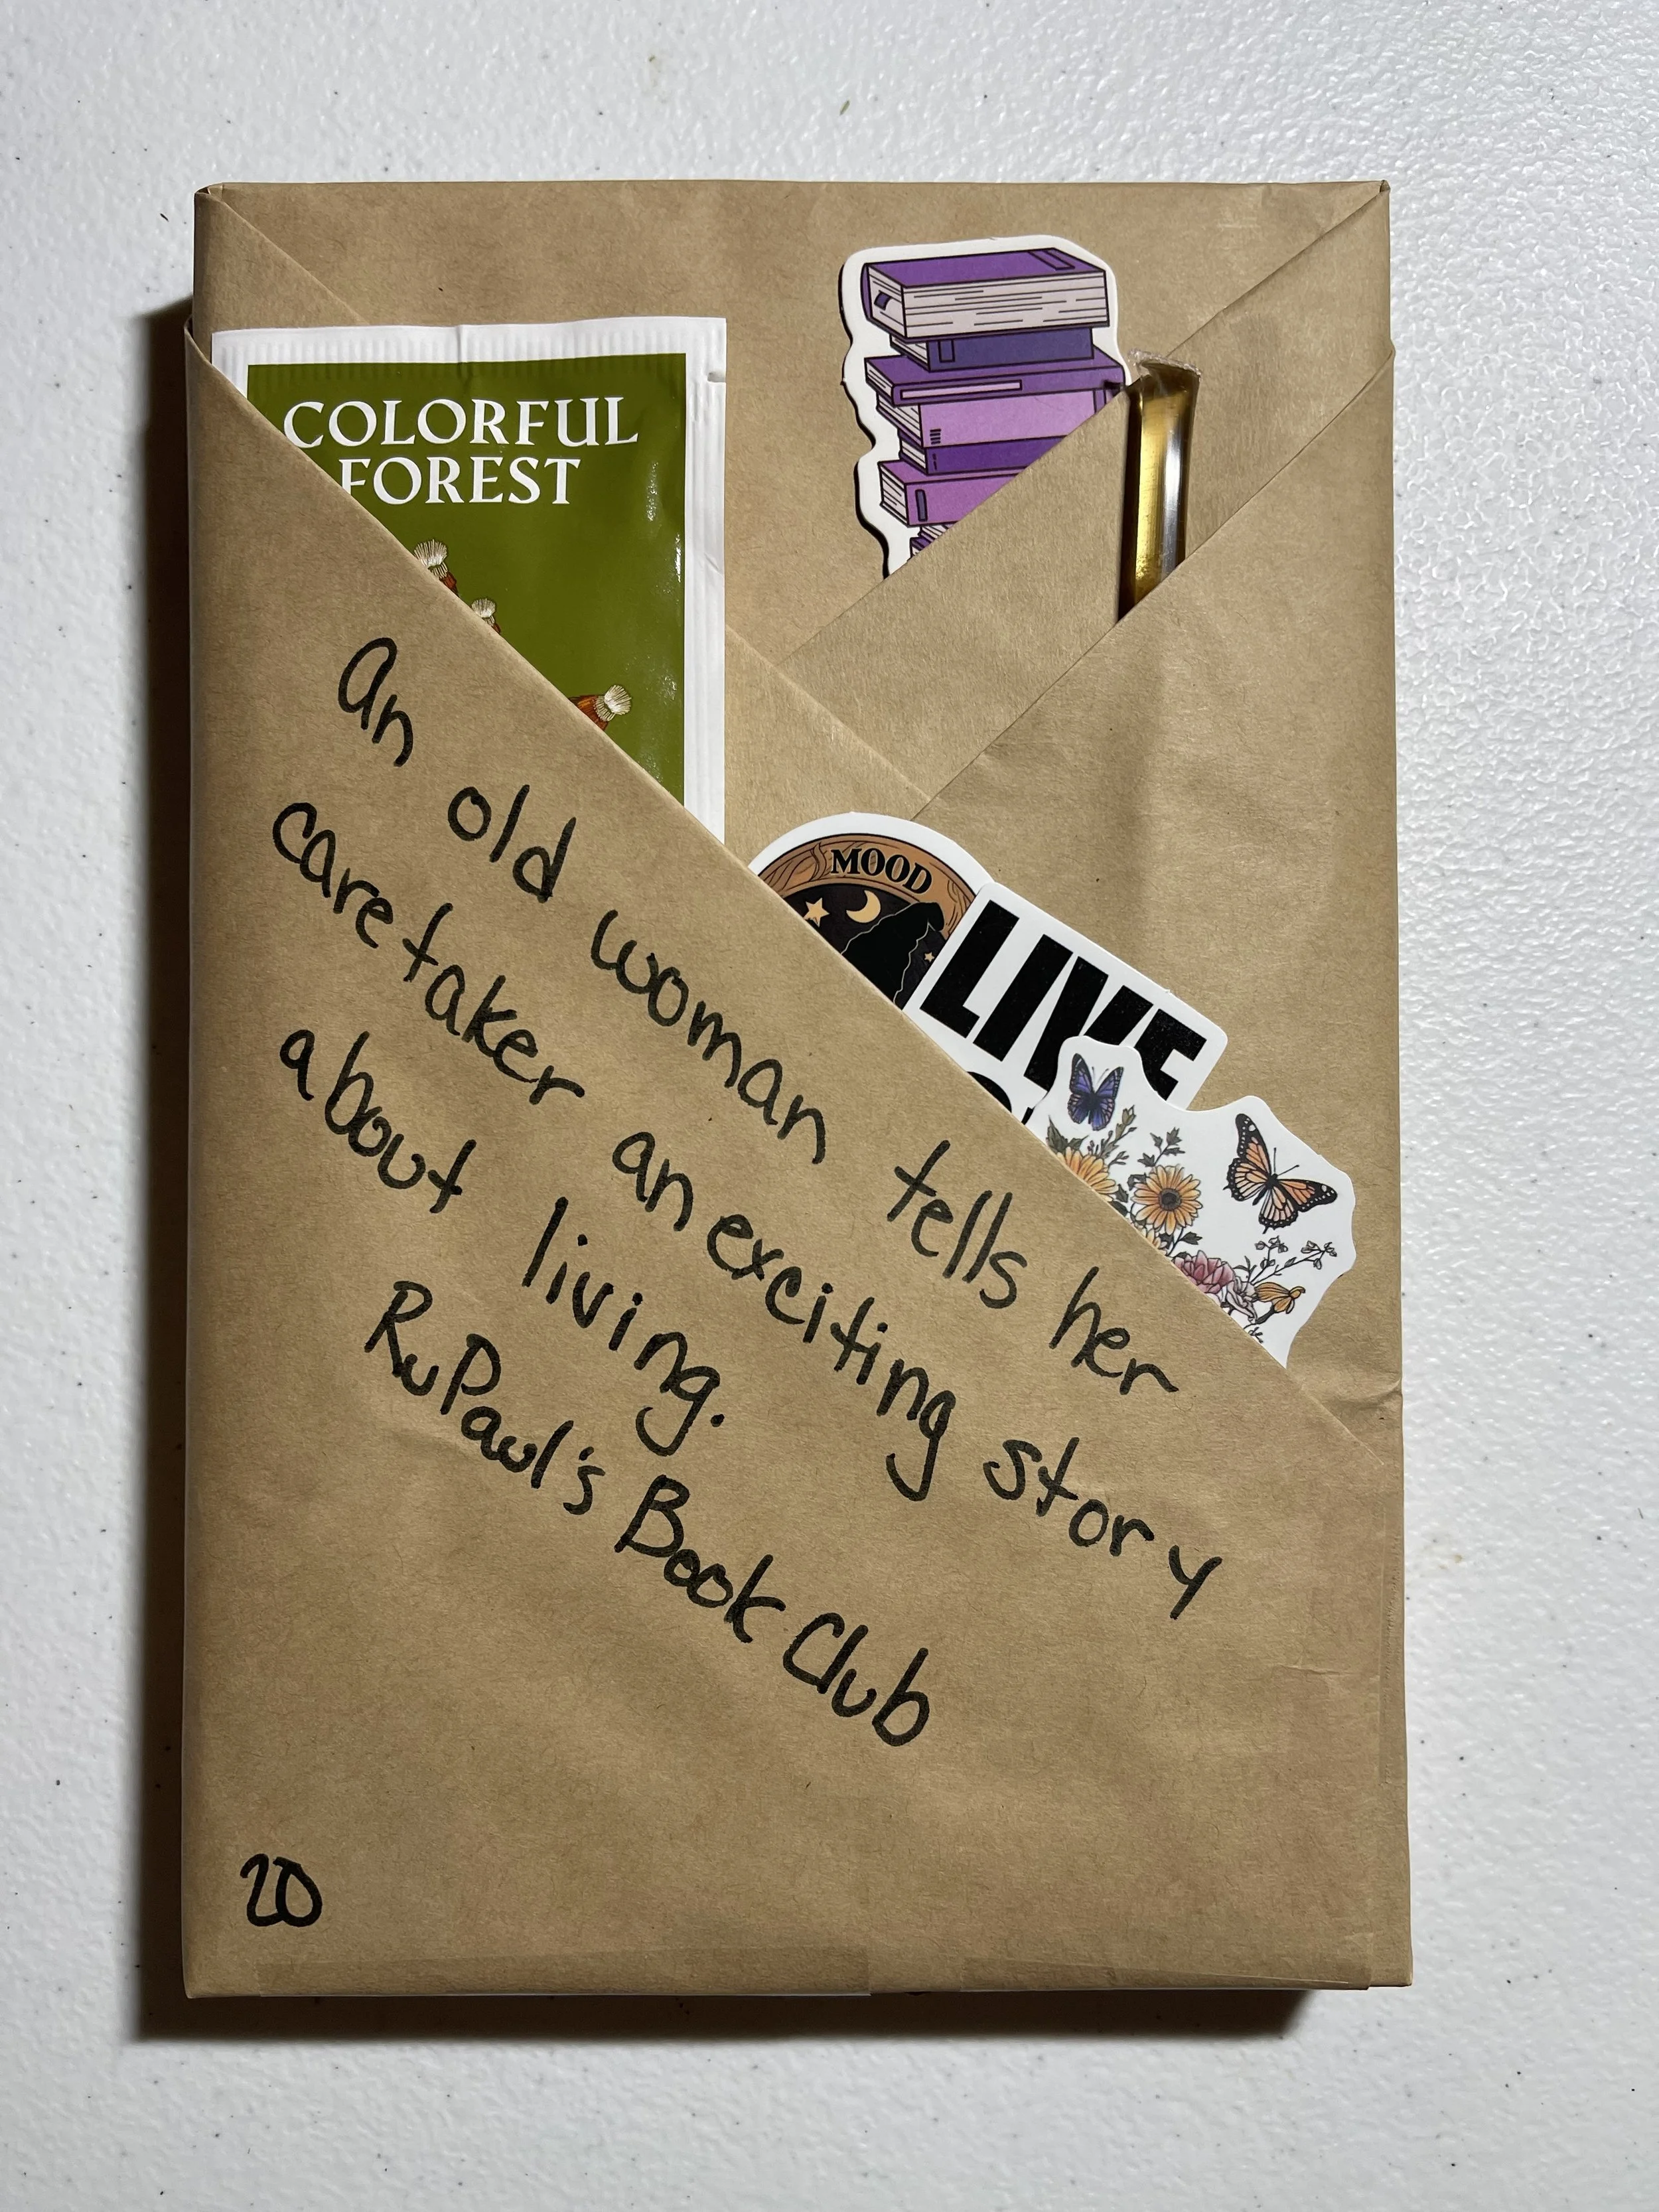 COLORFUL
FOREST
MOOD
LIVE
An old woman tells her
caretaker an exciting story
about living.
RuPaul's Book Club
20